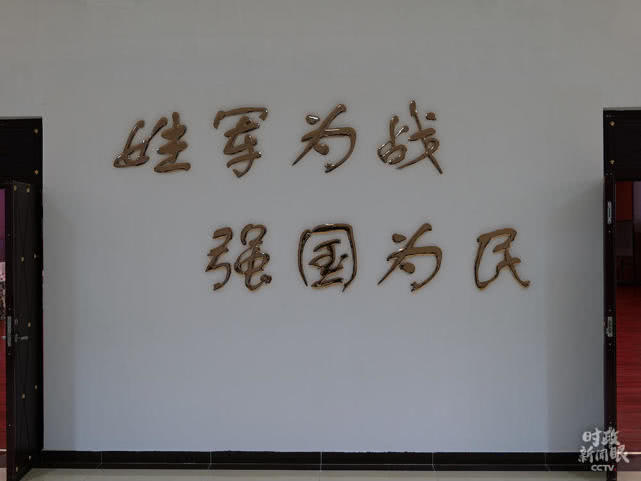 姓军为战
强国为民
时政
新闻眼
CCTV